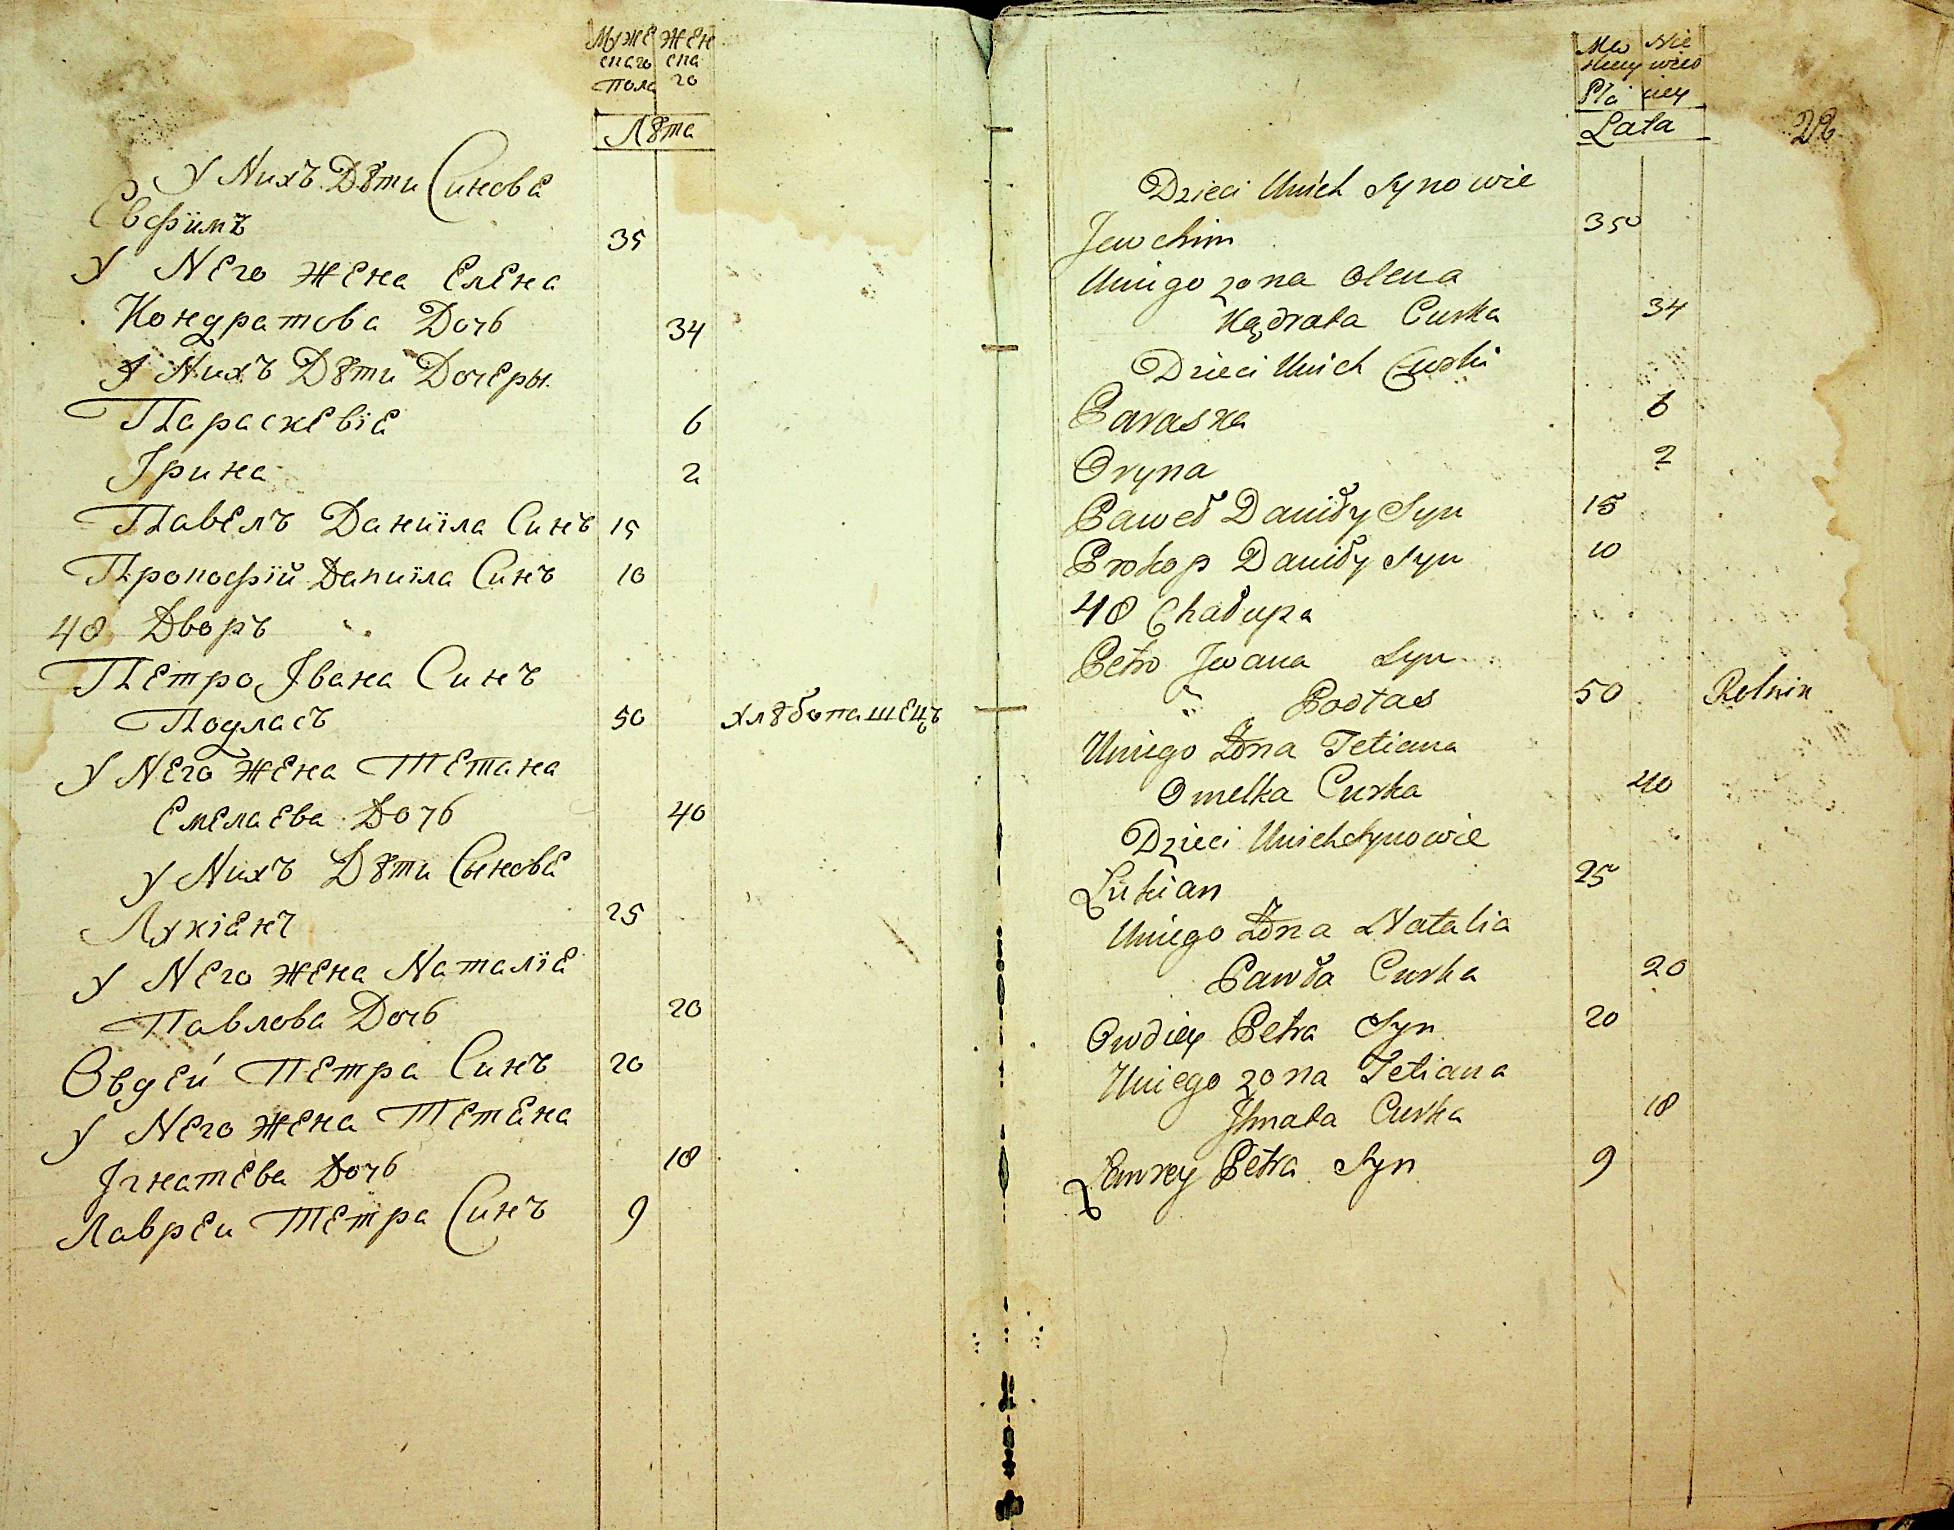 Муже Жен
скаго ска
Пола го
Лѣта
У Нихъ Дѣти Синовѣ
Евфимъ 35
У Него жена Елена
Кондратова Дочь 34
У Нихъ Дѣти Дочеры
Параскевіа 6
Ірина 2
Павелъ Даниіла Синъ 15
Прокофій Даниіла Синъ 10
48 Дворъ
Петро Івана Синъ
Подласъ 50 хлѣбопашецъ
У Него жена Тетана
Емелаева Дочь 40
У Нихъ Дѣти Сыновѣ
Лукіанъ 25
У Него жена Наталіа
Павлова Дочь 20
Овдей Петра Синъ 20
У Него жена Тетана
Ігнатева Дочь 18
Лаврен Петра Синъ 9
Męz Nie
skiey wies
Płci ciey
Lata
28
Dzieci Unich Synowie
Jewchim 35
Unigo zona Olena
Kądrata Curka 34
Dzieci Unich Curki
Paraska 6
Oryna 2
Paweł Daniły Syn 15
Prokop Daniły Syn 10
48 Chałupa
Petro Jwana Syn
Podłas 50 Rolnik
Uniego Żona Tetiana
Omelka Curka 40
Dzieci Unich Synowie
Lukian 25
Uniego Żona Natalia
Pawła Curka 20
Owdiey Petra Syn 20
Uniego zona Tetiana
Jhnata Curka 18
Ławrey Petra Syn 9